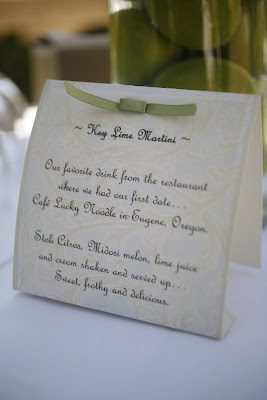 ~ Key Lime Martini ~
Our favorite drink from the restaurant
where we had our first date...
Café Lucky Noodle in Eugene, Oregon.
Stoli Citros, Midori melon, lime juice
and cream shaken and served up...
Sweet, frothy and delicious.